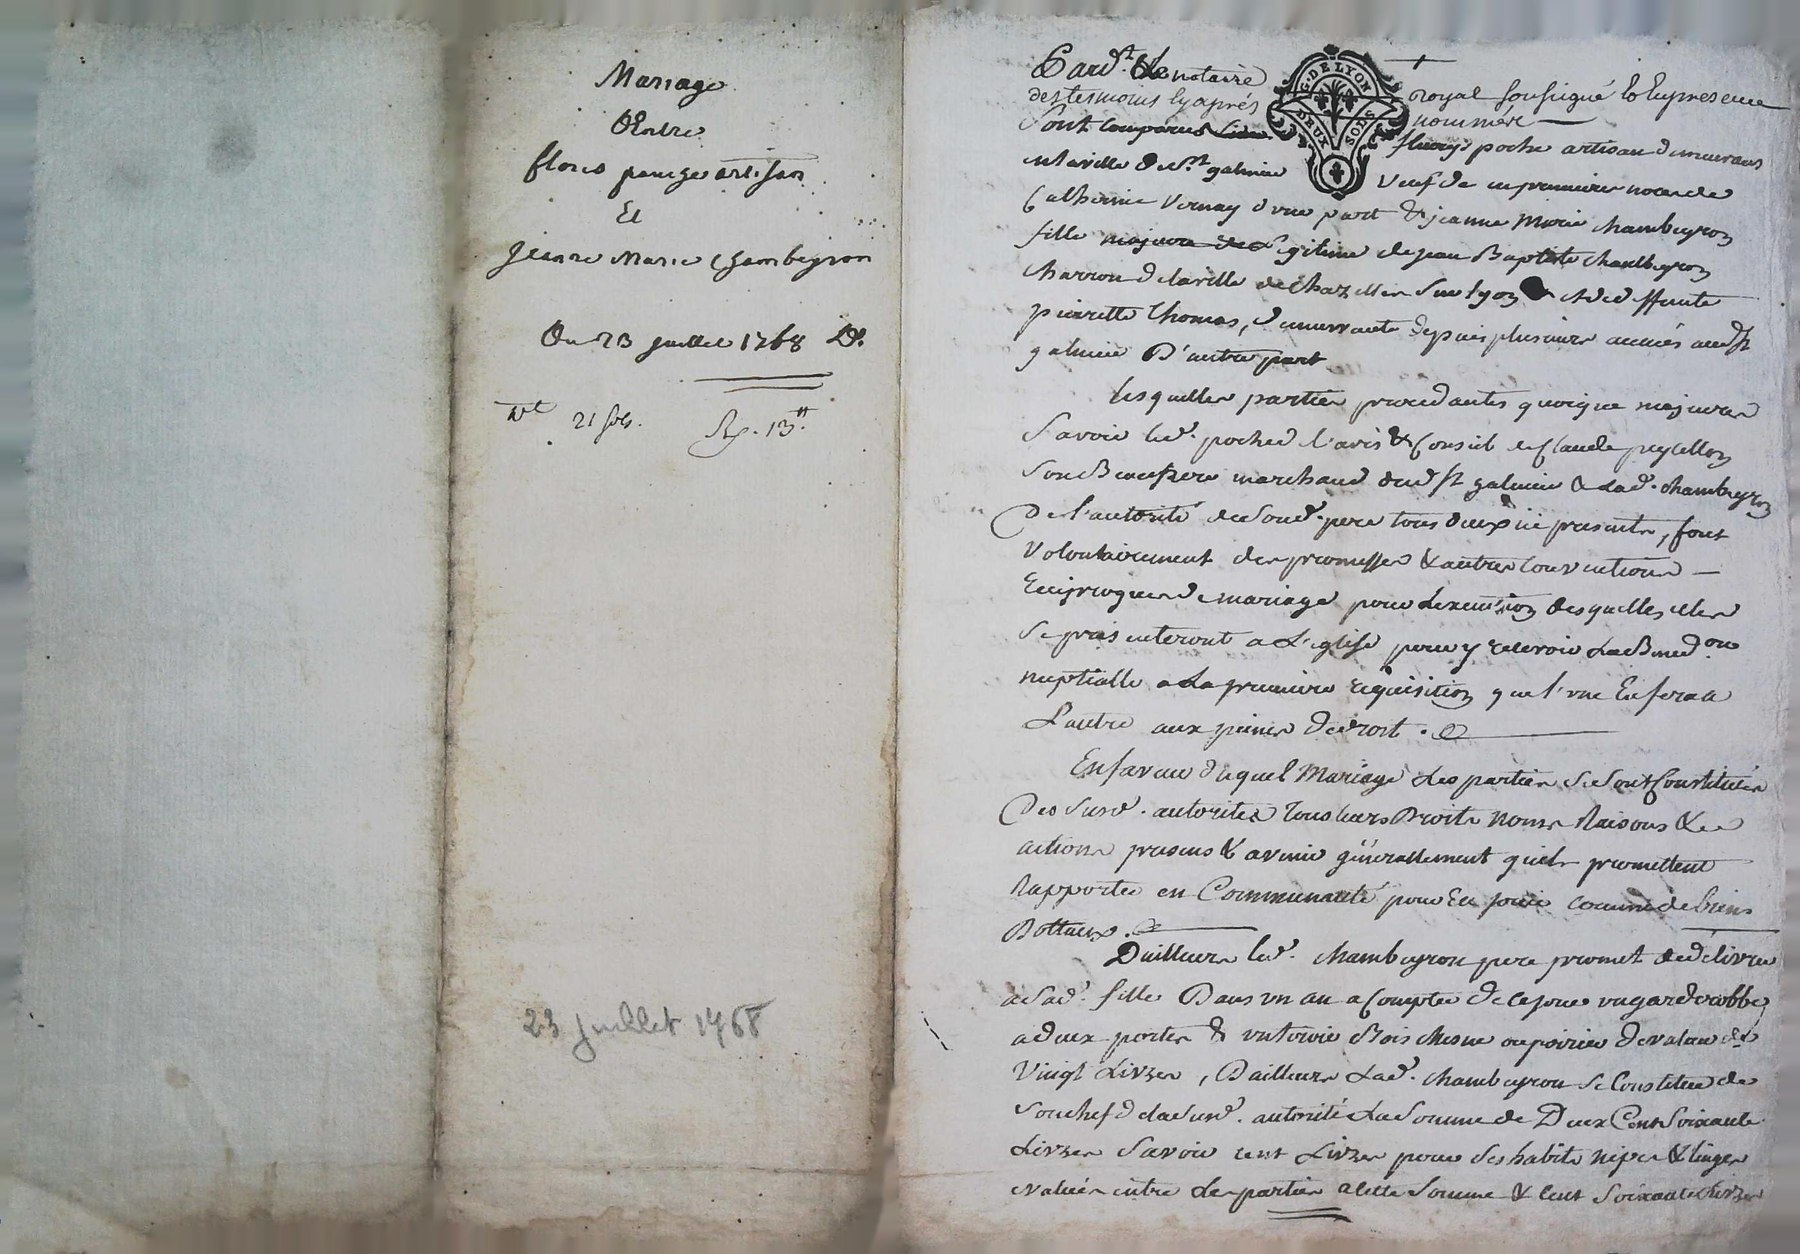 Mariage
Entre
artisan
Et
Jeanne Marie Chambeyron
Du 23 juillet 1768
21 sols. 13.
23 juillet 1768
G. DE LYON
DEUX SOLS
Pard.t Le notaire royal soussigné & En presence
des tesmoins cy aprés nommés
sont comparus fleury poche artisan demeurant
en la ville de St galmier veuf de en premieres noces de
Catherine Vernay d'une part & jeanne Marie chambeyron
fille legitime de jean Baptiste chambeyron
charron de la ville de chazelles sur lyon & de deffunte
pierrette thomas, demeurante depuis plusieurs années aud. st
galmier D'autre part
Lesquelles parties procedantes quoique majeures
Savoir led. poche de l'avis & Conseil de Claude peycellon
son Beaufrere marchand dud. st galmier & Lad. chambeyron
De l'autorité de Sond. pere tous deux ici presents, font
volontairement des promesses & autres conventions
Reciproques de mariage pour L'exécution desquelles elles
Se présenteront a L'eglise pour y recevoir La Bened.on
nuptialle a La premiere requisition que l'une En fera a
L'autre aux peines De droit.
En faveur duquel Mariage Les parties Se sont Constituées
Des Susd. autorités tous leurs Droits noms Raisons &
actions presens & avenir généralement qu'ils promettent
Rapporter en Communauté pour En jouir comme de biens
Dottaux.
Dailleurs led. chambeyron pere promet de délivrer
a Sad. fille Dans un an a Compter de ce jour un garderobbe
a deux portes & un tiroir Bois chesne ou poirier de valeur de
Vingt Livres, Dailleurs Lad. chambeyron Se Constitue de
Son chef & de la Susd. autorité La Somme de Deux Cent Soixante
Livres Savoir cent Livres pour Ses habits nipes & linges
evalués entre Les parties a cette Somme & Cent Soixante Livres